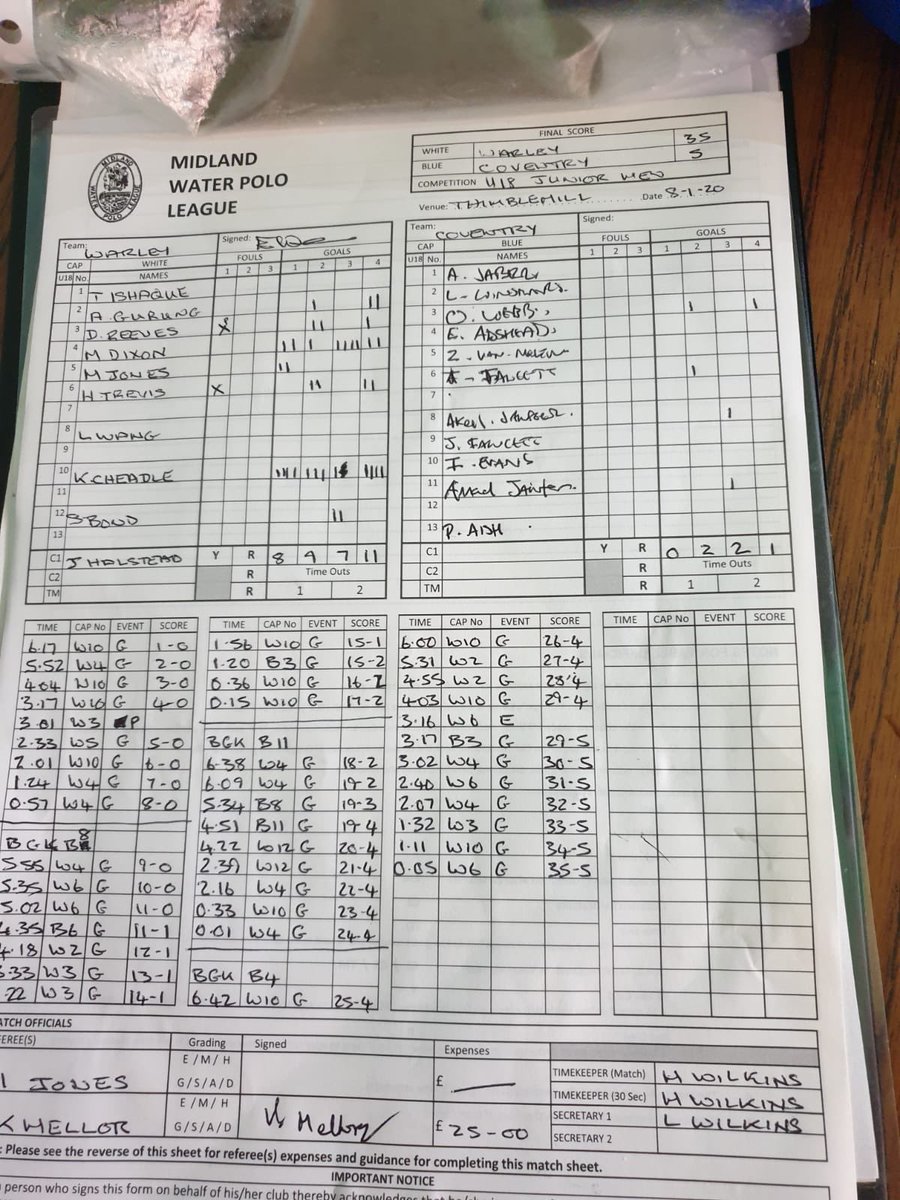 MIDLAND
WATER POLO
LEAGUE
MIDLAND WATER POLO LEAGUE
FINAL SCORE
WHITE WARLEY 35
BLUE COVENTRY 5
COMPETITION U18 JUNIOR MEN
Venue: THIMBLEMILL Date 8-1-20
Team: WARLEY Signed:
CAP WHITE FOULS GOALS
U18 No. NAMES 1 2 3 1 2 3 4
1 T ISHAQUE
2 A. GURUNG I II
3 D. REEVES X II I
4 M DIXON II I IIII II
5 M JONES II
6 H TREVIS X II II
7
8 L WANG
9
10 K CHEADLE
11
12 S BOND II
13
C1 J HALSTEAD Y R 8 9 7 11
C2 R Time Outs
TM R 1 2
Team: COVENTRY Signed:
CAP BLUE FOULS GOALS
U18 No. NAMES 1 2 3 1 2 3 4
1 A. JABERI
2 L.
3 O. WEBB I I
4 E. ADSHEAD
5 Z. VAN
6 FAUCETT I
7
8 I
9 J. FAWCETT
10 I. EVANS
11 I
12
13 P. ADH
C1 Y R 0 2 2 1
C2 R Time Outs
TM R 1 2
TIME CAP No EVENT SCORE
6.17 W10 G 1-0
5.52 W4 G 2-0
4.04 W10 G 3-0
3.17 W10 G 4-0
3.01 W3 P
2.33 W5 G 5-0
2.01 W10 G 6-0
1.24 W4 G 7-0
0.57 W4 G 8-0
BGK B8
5.55 W4 G 9-0
5.35 W6 G 10-0
5.02 W6 G 11-0
4.35 B6 G 11-1
4.18 W2 G 12-1
3.33 W3 G 13-1
22 W3 G 14-1
TIME CAP No EVENT SCORE
1.56 W10 G 15-1
1.20 B3 G 15-2
0.36 W10 G 16-2
0.15 W10 G 17-2
BGK B11
6.38 W4 G 18-2
6.09 W4 G 19-2
5.34 B8 G 19-3
4.51 B11 G 19-4
4.22 W12 G 20-4
2.39 W12 G 21-4
2.16 W4 G 22-4
0.33 W10 G 23-4
0.01 W4 G 24-4
BGK B4
6.42 W10 G 25-4
TIME CAP No EVENT SCORE
6.00 W10 G 26-4
5.31 W2 G 27-4
4.55 W2 G 28-4
4.03 W10 G 29-4
3.16 W6 E
3.17 B3 G 29-5
3.02 W4 G 30-5
2.40 W6 G 31-5
2.07 W4 G 32-5
1.32 W3 G 33-5
1.11 W10 G 34-5
0.05 W6 G 35-5
TIME CAP No EVENT SCORE
ATCH OFFICIALS
EFEREE(S) Grading Signed Expenses
JONES E / M / H G/S/A/D £ —
K MELLOR E / M / H G/S/A/D K Mellor £ 25-00
TIMEKEEPER (Match) H WILKINS
TIMEKEEPER (30 Sec) H WILKINS
SECRETARY 1 L WILKINS
SECRETARY 2
: Please see the reverse of this sheet for referee(s) expenses and guidance for completing this match sheet.
IMPORTANT NOTICE
person who signs this form on behalf of his/her club thereby